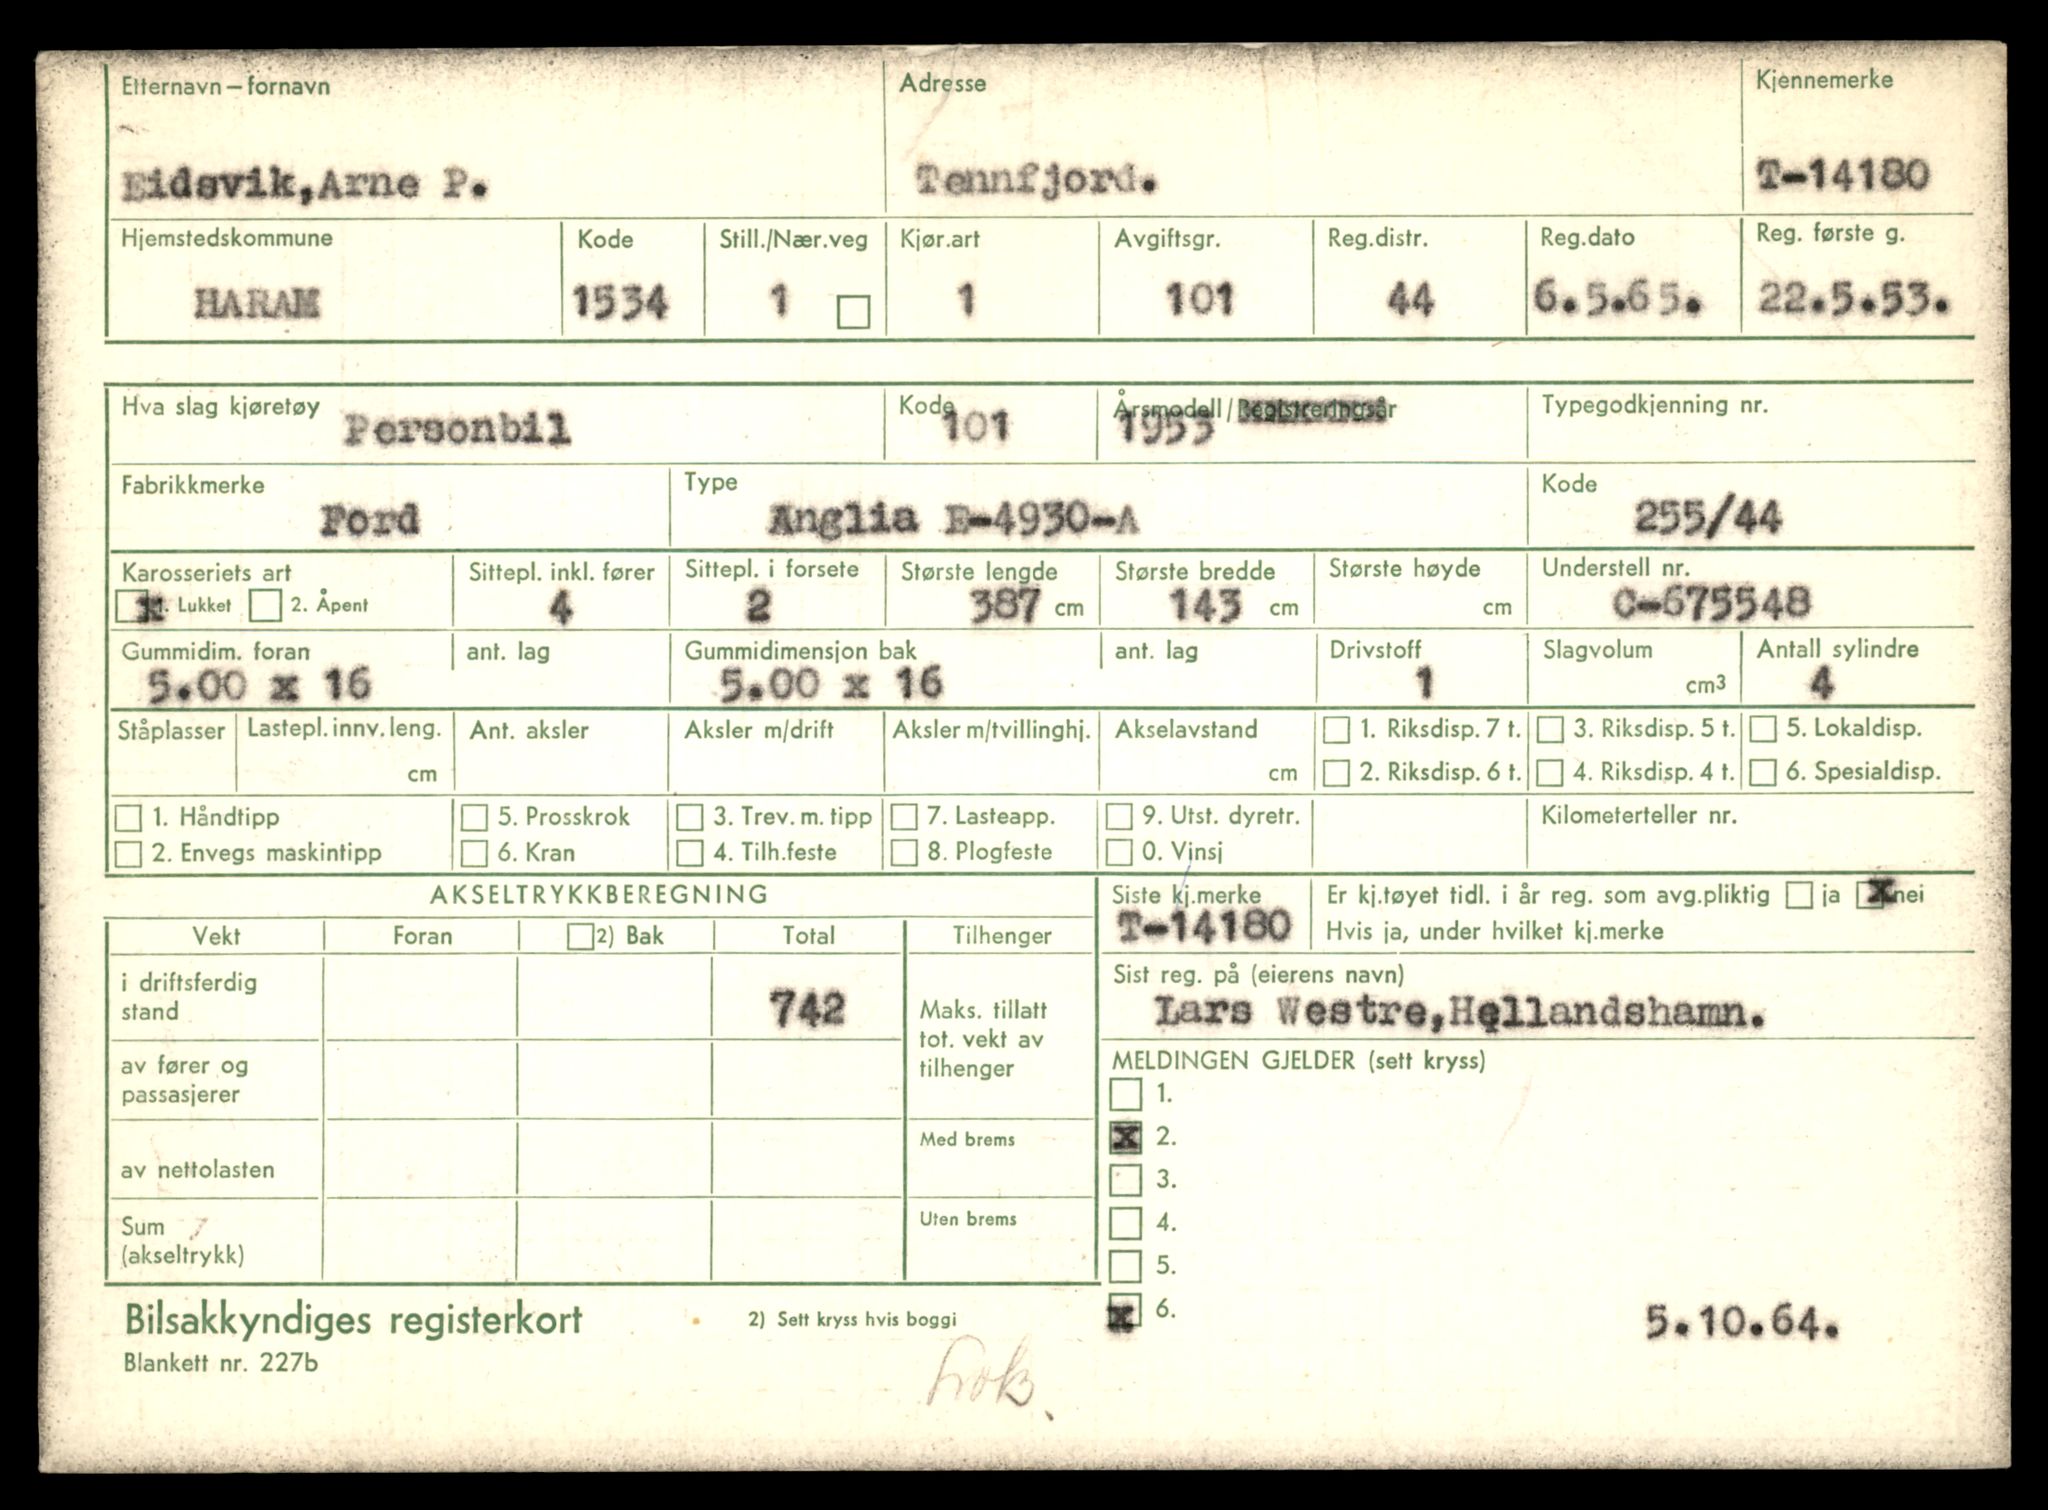 Etternavn – fornavn Adresse Kjennemerke
Eidsvik, Arne P. Tennfjord. T-14180
Hjemstedskommune Kode Still./Nær.veg Kjør.art Avgiftsgr. Reg.distr. Reg.dato Reg. første g.
HARAM 1534 1 1 101 44 6.5.65. 22.5.53.
Hva slag kjøretøy Personbil Kode 101 Årsmodell / Registreringsår 1953 Typegodkjenning nr.
Fabrikkmerke Type Kode
Ford Anglia E-4930-A 255/44
Karosseriets art Sittepl. inkl. fører Sittepl. i forsete Største lengde Største bredde Største høyde Understell nr.
x 1. Lukket 2. Åpent 4 2 387 cm 143 cm cm C-675548
Gummidim. foran ant. lag Gummidimensjon bak ant. lag Drivstoff Slagvolum Antall sylindre
5.00 x 16 5.00 x 16 1 cm3 4
Ståplasser Lastepl. innv. leng. Ant. aksler Aksler m/drift Aksler m/tvillinghj. Akselavstand 1. Riksdisp. 7 t. 3. Riksdisp. 5 t. 5. Lokaldisp.
cm cm 2. Riksdisp. 6 t. 4. Riksdisp. 4 t. 6. Spesialdisp.
1. Håndtipp 5. Prosskrok 3. Trev. m. tipp 7. Lasteapp. 9. Utst. dyretr. Kilometerteller nr.
2. Envegs maskintipp 6. Kran 4. Tilh.feste 8. Plogfeste 0. Vinsj
AKSELTRYKKBEREGNING Siste kj.merke Er kj.tøyet tidl. i år reg. som avg.pliktig ja x nei
T-14180 Hvis ja, under hvilket kj.merke
Vekt Foran 2) Bak Total Tilhenger
Sist reg. på (eierens navn)
i driftsferdig stand 742 Lars Westre, Hellandshamn.
Maks. tillatt tot. vekt av tilhenger
av fører og passasjerer MELDINGEN GJELDER (sett kryss)
1.
Med brems x 2.
av nettolasten 3.
Uten brems 4.
Sum (akseltrykk) 5.
x 6. 5.10.64.
Bilsakkyndiges registerkort 2) Sett kryss hvis boggi
Blankett nr. 227b